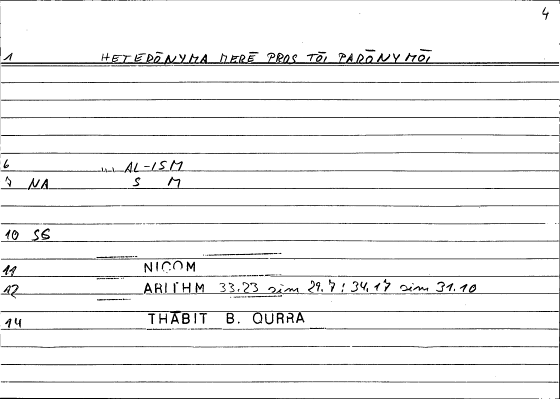 4
1 HETERŌNYMA MERĒ PROS TŌI PARŌNYMŌI
6 ,,,, AL-ISM
7 NA S M
10 SG
11 NICOM
12 ARITHM 33.23 sim 29.7 ; 34.17 sim 31.10
14 THĀBIT B. QURRA